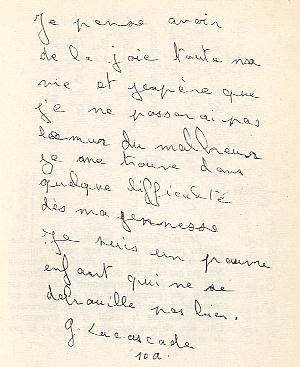 Je pense avoir
de la joie toute ma
vie et j'espère que
je ne passerai pas
le mur du malheur
je me trouve dans
quelque difficulté
dès ma jennesse
Je suis un pauvre
enfant qui ne se
débrouille pas bien.
G. Lacascade
10 a.